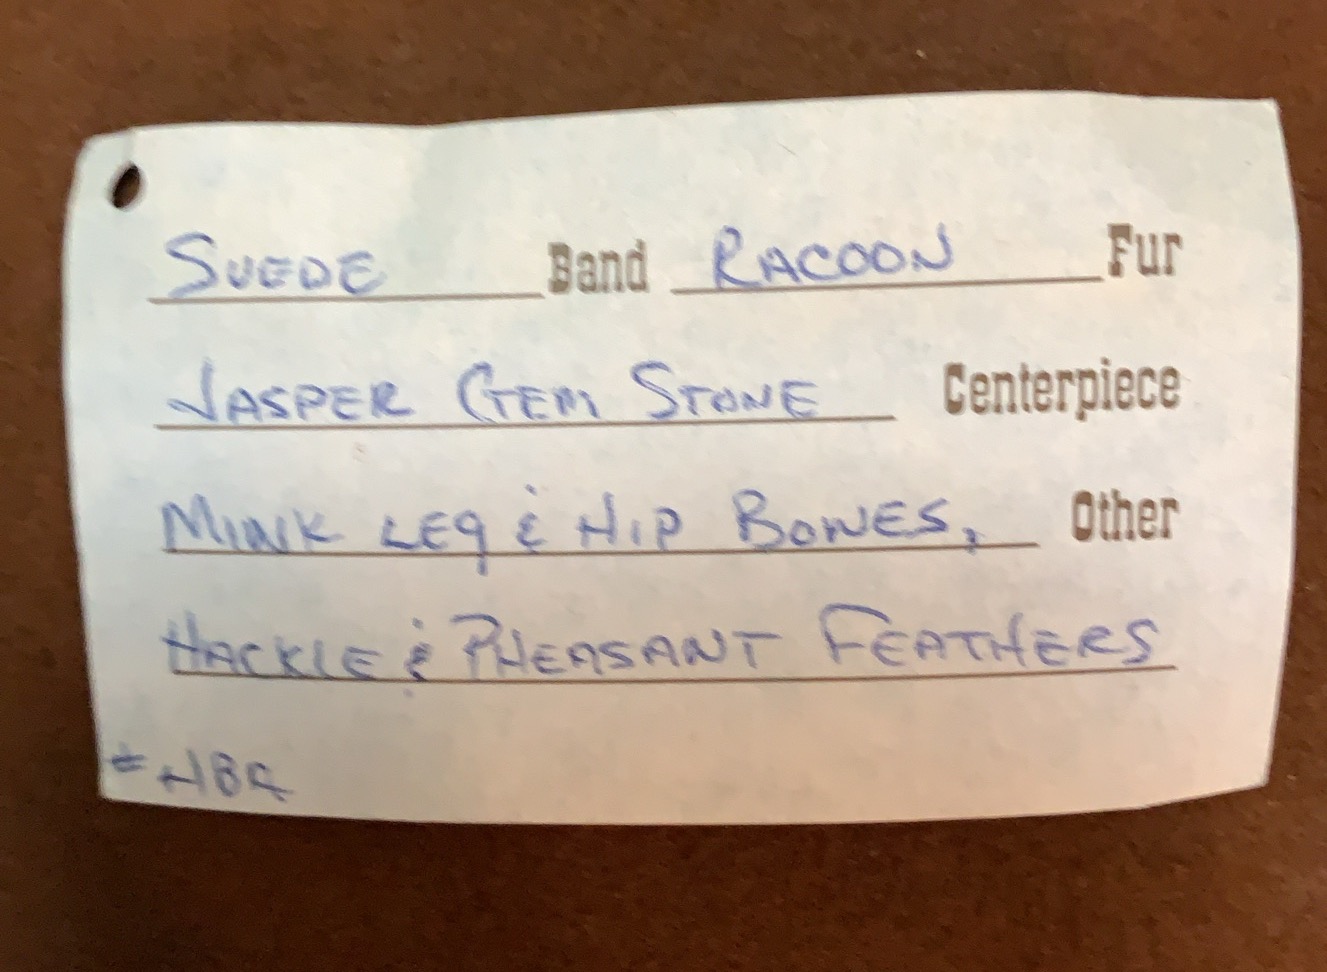 SUEDE Band RACOON Fur
JASPER GEM STONE Centerpiece
MINK LEG & HIP BONES, Other
HACKLE & PHEASANT FEATHERS